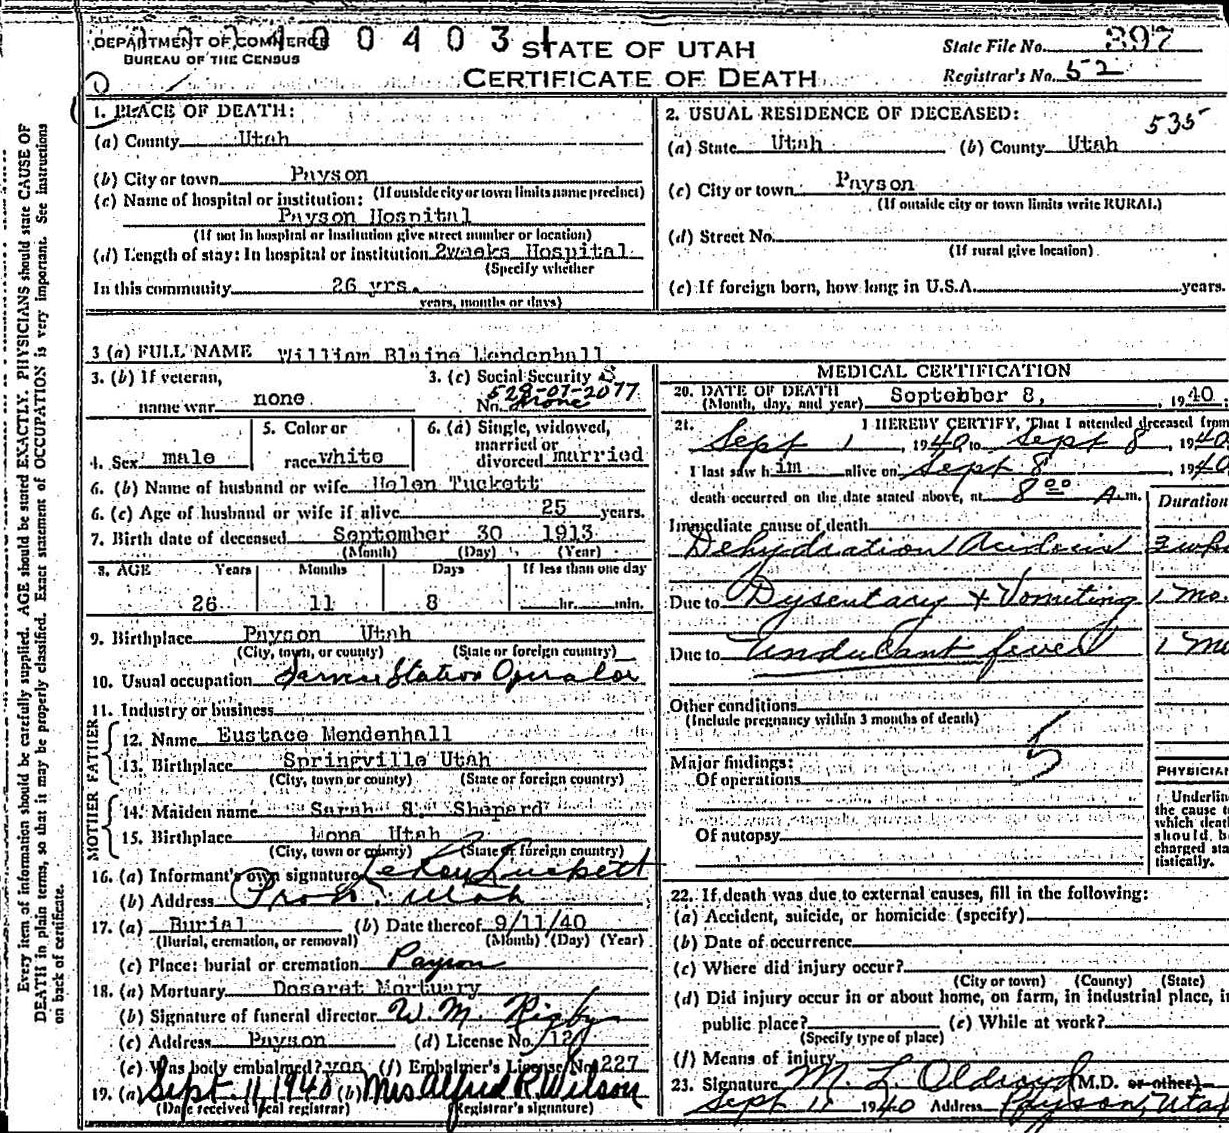 DEPARTMENT OF COMMERCE
BUREAU OF THE CENSUS
STATE OF UTAH
CERTIFICATE OF DEATH
State File No. 397
Registrar's No. 52
1. PLACE OF DEATH:
(a) County Utah
(b) City or town Payson
(If outside city or town limits name precinct)
(c) Name of hospital or institution:
Payson Hospital
(If not in hospital or institution give street number or location)
(d) Length of stay: In hospital or institution 2weeks Hospital
(Specify whether
In this community 26 yrs.
years, months or days)
2. USUAL RESIDENCE OF DECEASED:
535
(a) State Utah (b) County Utah
(c) City or town Payson
(If outside city or town limits write RURAL)
(d) Street No.
(If rural give location)
(e) If foreign born, how long in U.S.A. years.
3 (a) FULL NAME William Blaine Mendenhall
3. (b) If veteran,
name war none
3. (c) Social Security
No. 529-07-2077
none
4. Sex male
5. Color or
race white
6. (a) Single, widowed,
married or
divorced married
6. (b) Name of husband or wife Helen Tuckett
6. (c) Age of husband or wife if alive 25 years.
7. Birth date of deceased September 30 1913
(Month) (Day) (Year)
8. AGE Years Months Days If less than one day
26 11 8 hr. min.
9. Birthplace Payson Utah
(City, town, or county) (State or foreign country)
10. Usual occupation Service Station Operator
11. Industry or business
FATHER
12. Name Eustace Mendenhall
13. Birthplace Springville Utah
(City, town or county) (State or foreign country)
MOTHER
14. Maiden name Sarah S. Shepard
15. Birthplace Mona Utah
(City, town or county) (State or foreign country)
16. (a) Informant's own signature LeRoy Tuckett
(b) Address Provo, Utah
17. (a) Burial (b) Date thereof 9/11/40
(Burial, cremation, or removal) (Month) (Day) (Year)
(c) Place: burial or cremation Payson
18. (a) Mortuary Deseret Mortuary
(b) Signature of funeral director W. M. Rigby
(c) Address Payson (d) License No. 120
(e) Was body embalmed? yes (f) Embalmer's License No. 227
19. (a) Sept. 11, 1940 (b) Mrs Alfred R. Wilson
(Date received local registrar) (Registrar's signature)
MEDICAL CERTIFICATION
20. DATE OF DEATH
(Month, day, and year) September 8, , 1940;
21. I HEREBY CERTIFY, That I attended deceased from
Sept 1, 1940 to Sept 8, 1940
I last saw him alive on Sept 8, 1940
death occurred on the date stated above, at 8 00 A. m.
Duration
Immediate cause of death
Dehydration Acidosis 2 wks
Due to Dysentary & Vomiting 1 mo.
Due to Undulant fever 1 mo
Other conditions
(Include pregnancy within 3 months of death)
5
Major findings:
Of operations
Of autopsy
PHYSICIAN
Underline
the cause to
which death
should be
charged sta
tistically.
22. If death was due to external causes, fill in the following:
(a) Accident, suicide, or homicide (specify)
(b) Date of occurrence
(c) Where did injury occur?
(City or town) (County) (State)
(d) Did injury occur in or about home, on farm, in industrial place, in
public place? (e) While at work?
(Specify type of place)
(f) Means of injury
23. Signature M. L. Oldroyd (M.D. or other)
Sept 11 1940 Address Payson, Utah
Every item of information should be carefully supplied. AGE should be stated EXACTLY. PHYSICIANS should state CAUSE OF
DEATH in plain terms, so that it may be properly classified. Exact statement of OCCUPATION is very important. See instructions
on back of certificate.